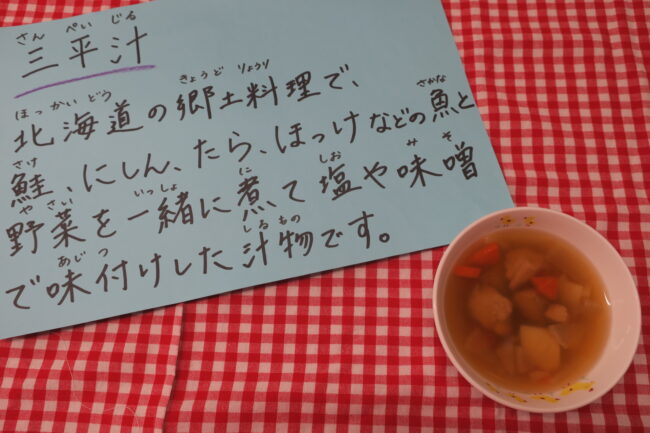 さんぺいじる
三平汁
ほっかいどう きょうど りょうり さかな
北海道の郷土料理で、
さけ
鮭、にしん、たら、ほっけなどの魚と
やさい いっしょ に しお みそ
野菜を一緒に煮て塩や味噌
あじつ しるもの
で味付けした汁物です。